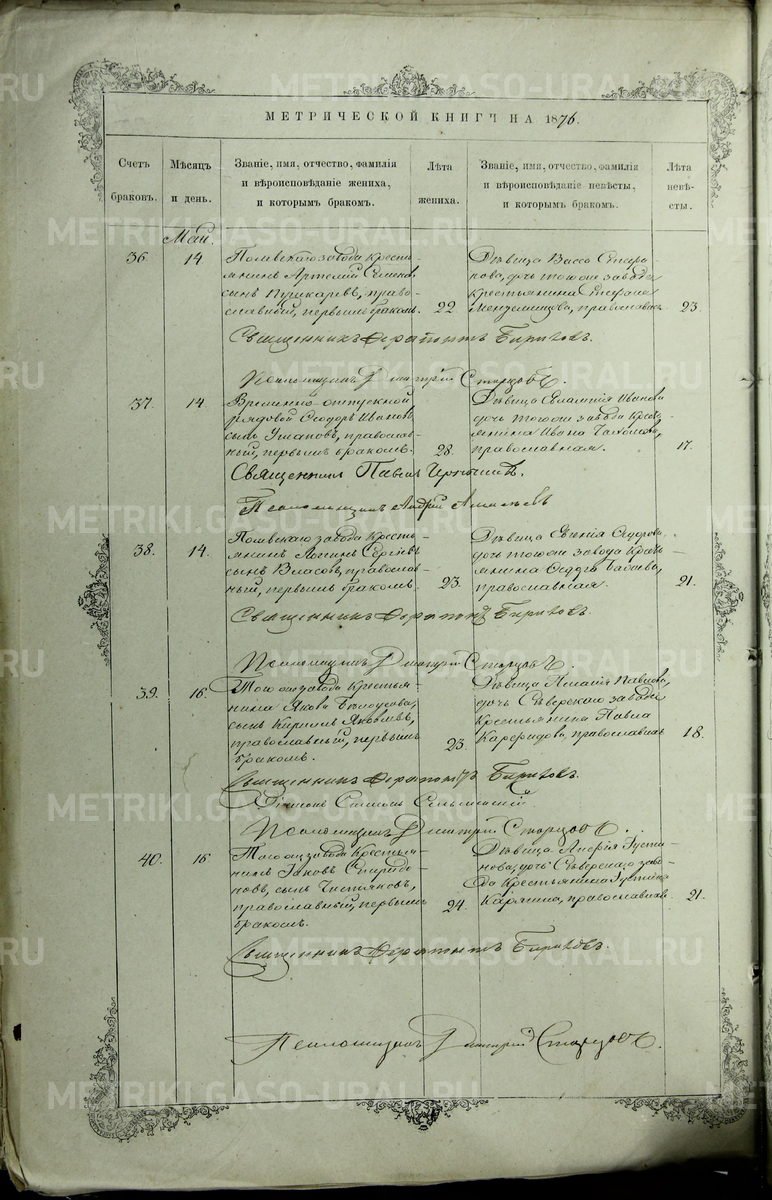 МЕТРИЧЕСКОЙ КНИГИ НА 1876.
Счетъ браковъ.
Мѣсяцъ и день.
Званіе, имя, отчество, фамилія
и вѣроисповѣданіе жениха,
и которымъ бракомъ.
Лѣта жениха.
Званіе, имя, отчество, фамилія
и вѣроисповѣданіе невѣсты,
и которымъ бракомъ.
Лѣта невѣ-
сты.
Май.
36. 14
Полевскаго завода кресть-
янинъ Артемій
сынъ Пушкаревъ, право-
славный, первымъ бракомъ.
22.
Дѣвица Васса
дочь тогоже завода
крестьянина
православн.
23.
Священникъ Бирюковъ.
Псаломщикъ Дмитрій Старцовъ.
37. 14.
Временно-отпускной
рядовой Ѳеодоръ Ивановъ
сынъ православ-
ный, первымъ бракомъ.
28.
Дѣвица Иванова
дочь тогоже завода кресть-
янина Ивана
православная.
17.
Священникъ Павелъ
Псаломщикъ Андрей
38. 14.
Полевскаго завода кресть-
янинъ Логинъ Сергѣевъ
сынъ Власовъ, православ-
ный, первымъ бракомъ.
23.
Дѣвица Евгенія Ѳедорова
дочь тогоже завода кресть-
янина Ѳедора
православная.
21.
Священникъ Бирюковъ.
Псаломщикъ Дмитрій Старцовъ.
39. 16.
Того же завода крестья-
нина Якова Бѣлоусова,
сынъ Кириллъ Яковлевъ,
православный, первымъ
бракомъ.
23.
Дѣвица Пелагія Павлова,
дочь Сѣверскаго завода
крестьянина Павла
православная
18.
Священникъ Бирюковъ.
Псаломщикъ Дмитрій Старцовъ.
40. 16
Того же завода крестья-
нинъ Іаковъ Спиридо-
новъ, сынъ Чистяковъ,
православный, первымъ
бракомъ.
24.
Дѣвица Густи-
нова, дочь Сѣверскаго заво-
да крестьянина Густина
православная
21.
Священникъ Бирюковъ.
Псаломщикъ Дмитрій Старцовъ.
METRIKI.GASO-URAL.RU